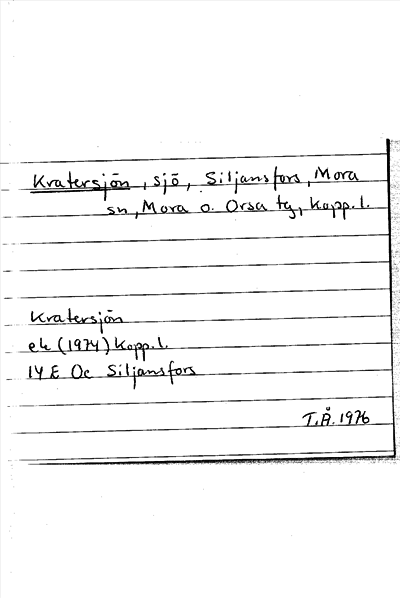 Kratersjön, sjö, Siljansfors, Mora
sn, Mora o. Orsa tg, Kopp. l.
Kratersjön
ek (1974) Kopp. l.
14 E Oc Siljansfors
T.Å. 1976